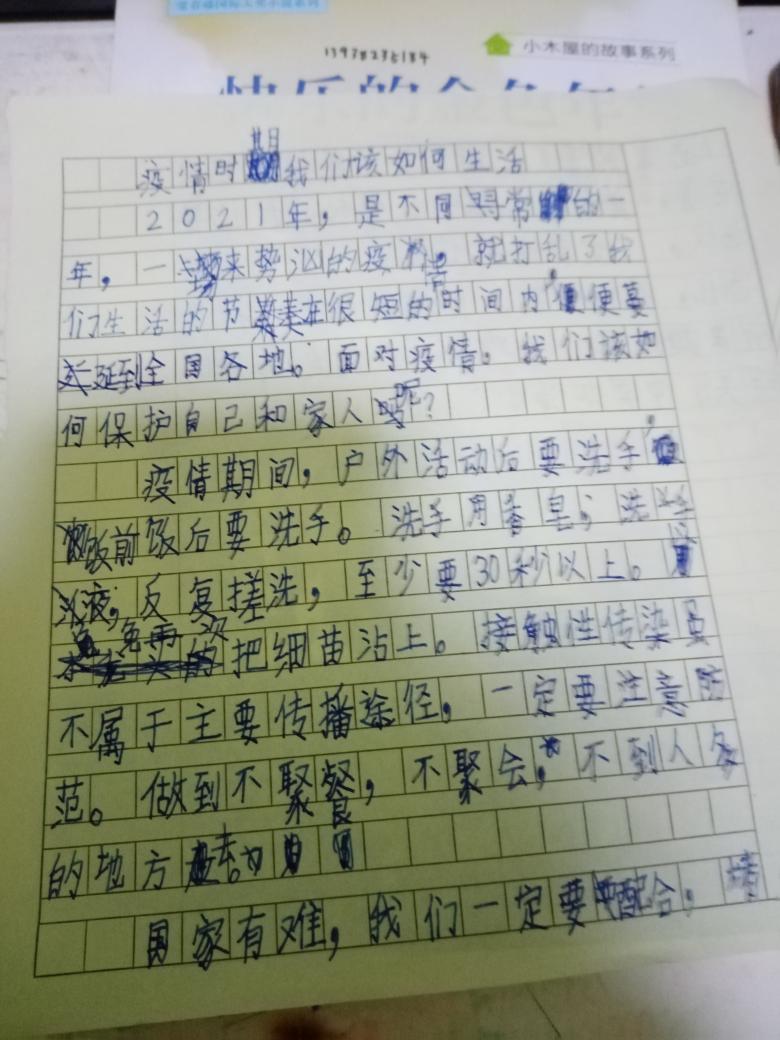 小木屋的故事系列
疫情时期我们该如何生活
2021年，是不同寻常的一
年，一势来势汹的疫情，就打乱了我
们生活的节奏在很短的时间内，便蔓
延到全国各地。面对疫情。我们该如
何保护自己和家人呢？
疫情期间，户外活动后要洗手，
饭前饭后要洗手。洗手用香皂；洗手
液，反复搓洗，至少要30秒以上。
免再次把细苗沾上。接触性传染虽
不属于主要传播途径，一定要注意防
范。做到不聚餐，不聚会，不到人多
的地方去。
国家有难，我们一定要配合，